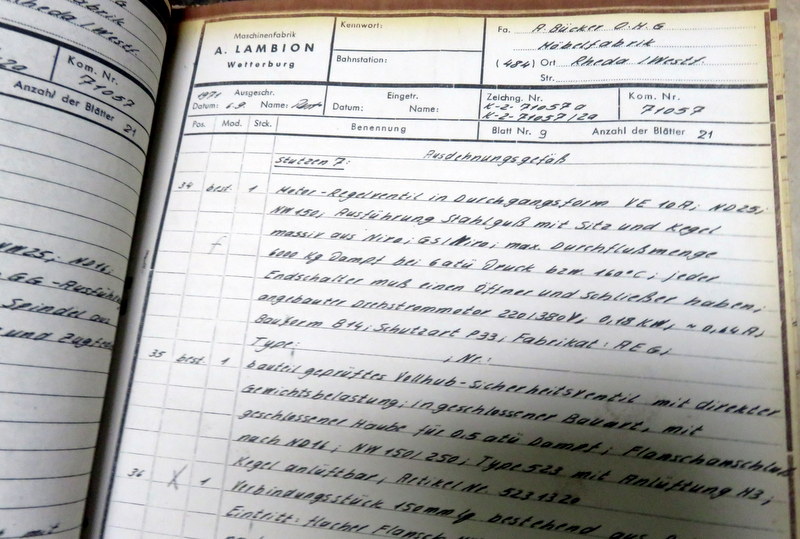 Rheda / Westf.
Kom. Nr.
71057
Anzahl der Blätter 21
NW25; ND16;
Spindel aus
mit
Maschinenfabrik
A. LAMBION
Wetterburg
Kennwort:
Bahnstation:
Fa. A. Bücker O.H.G
Möbelfabrik
(484) Ort Rheda / Westf.
Str.
1971 Ausgeschr.
Datum: 6.9. Name:
Eingetr.
Datum: Name:
Zeichng. Nr.
K-2-71057 a
K-2-71057/2a
Kom. Nr.
71057
Pos. Mod. Stck. Benennung
Blatt Nr. 9 Anzahl der Blätter 21
Stutzen 7: Ausdehnungsgefäß
34 best. 1 Motor-Regelventil in Durchgangsform VE 10A; ND25;
NW150; Ausführung Stahlguß mit Sitz und Kegel
massiv aus Niro; GS/Niro; max. Durchflußmenge
6000 Kg Dampf bei 6 atü Druck bzw. 160°C; jeder
Endschalter muß einen Öffner und Schließer haben;
angebauter Drehstrommotor 220/380V; 0,18 KW;
Bauform B14; Schutzart P33; Fabrikat: AEG;
Type: ; Nr.:
35 best. 1 bauteilgeprüftes Vollhub-Sicherheitsventil mit direkter
Gewichtsbelastung; in geschlossener Bauart, mit
geschlossener Haube für 0,5 atü Dampf; Flanschanschluß
nach ND16; NW 150/250; Type 523 mit Anlüftung H3;
Kegel anlüftbar; Artikel Nr. 523 1320
36 X 1 Verbindungsstück 150mm lg bestehend aus
Eintritt: flacher Flansch